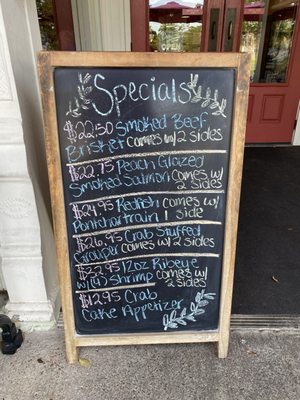 OPEN
Specials
$22.50 Smoked Beef
Brisket comes w/ 2 sides
$22.75 Peach Glazed
Smoked Salmon comes w/
2 sides
$24.95 Redfish
Pontchartrain 1 side
$26.95 Crab Stuffed
Grouper comes w/ 2 sides
12oz Ribeye
w/(4) Shrimp comes w/
2 sides
$12.95 Crab
Cake Appetizer